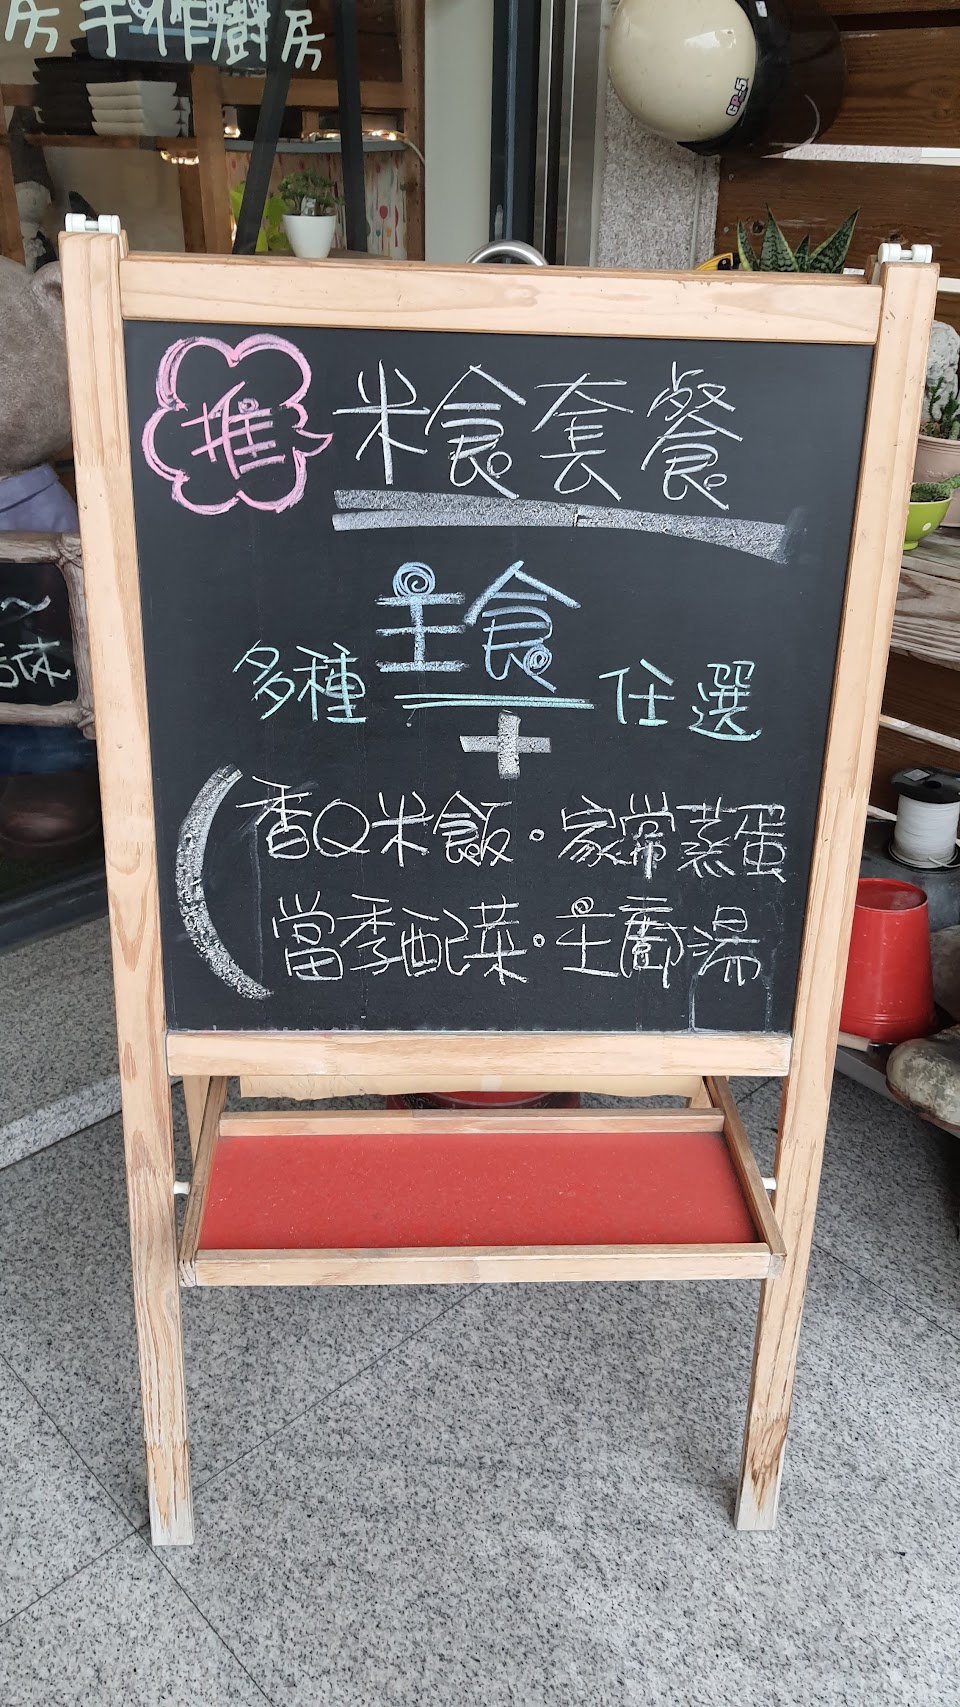 房手作廚房
CP-5
推 米食套餐
多種主食任選
+
香Q米飯。家常蒸蛋
當季配菜。主廚湯